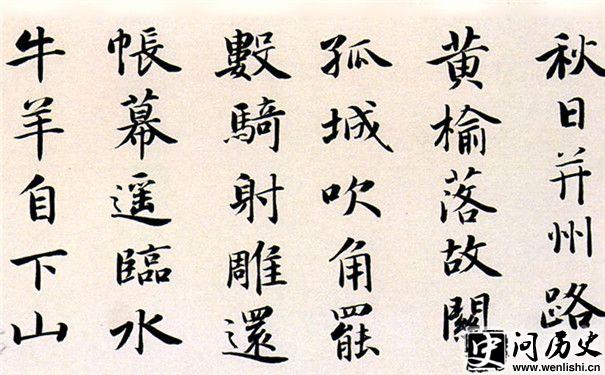 秋日并州路
黄榆落故關
孤城吹角罷
數騎射雕還
帳幕遥臨水
牛羊自下山
史问历史
www.wenlishi.cn